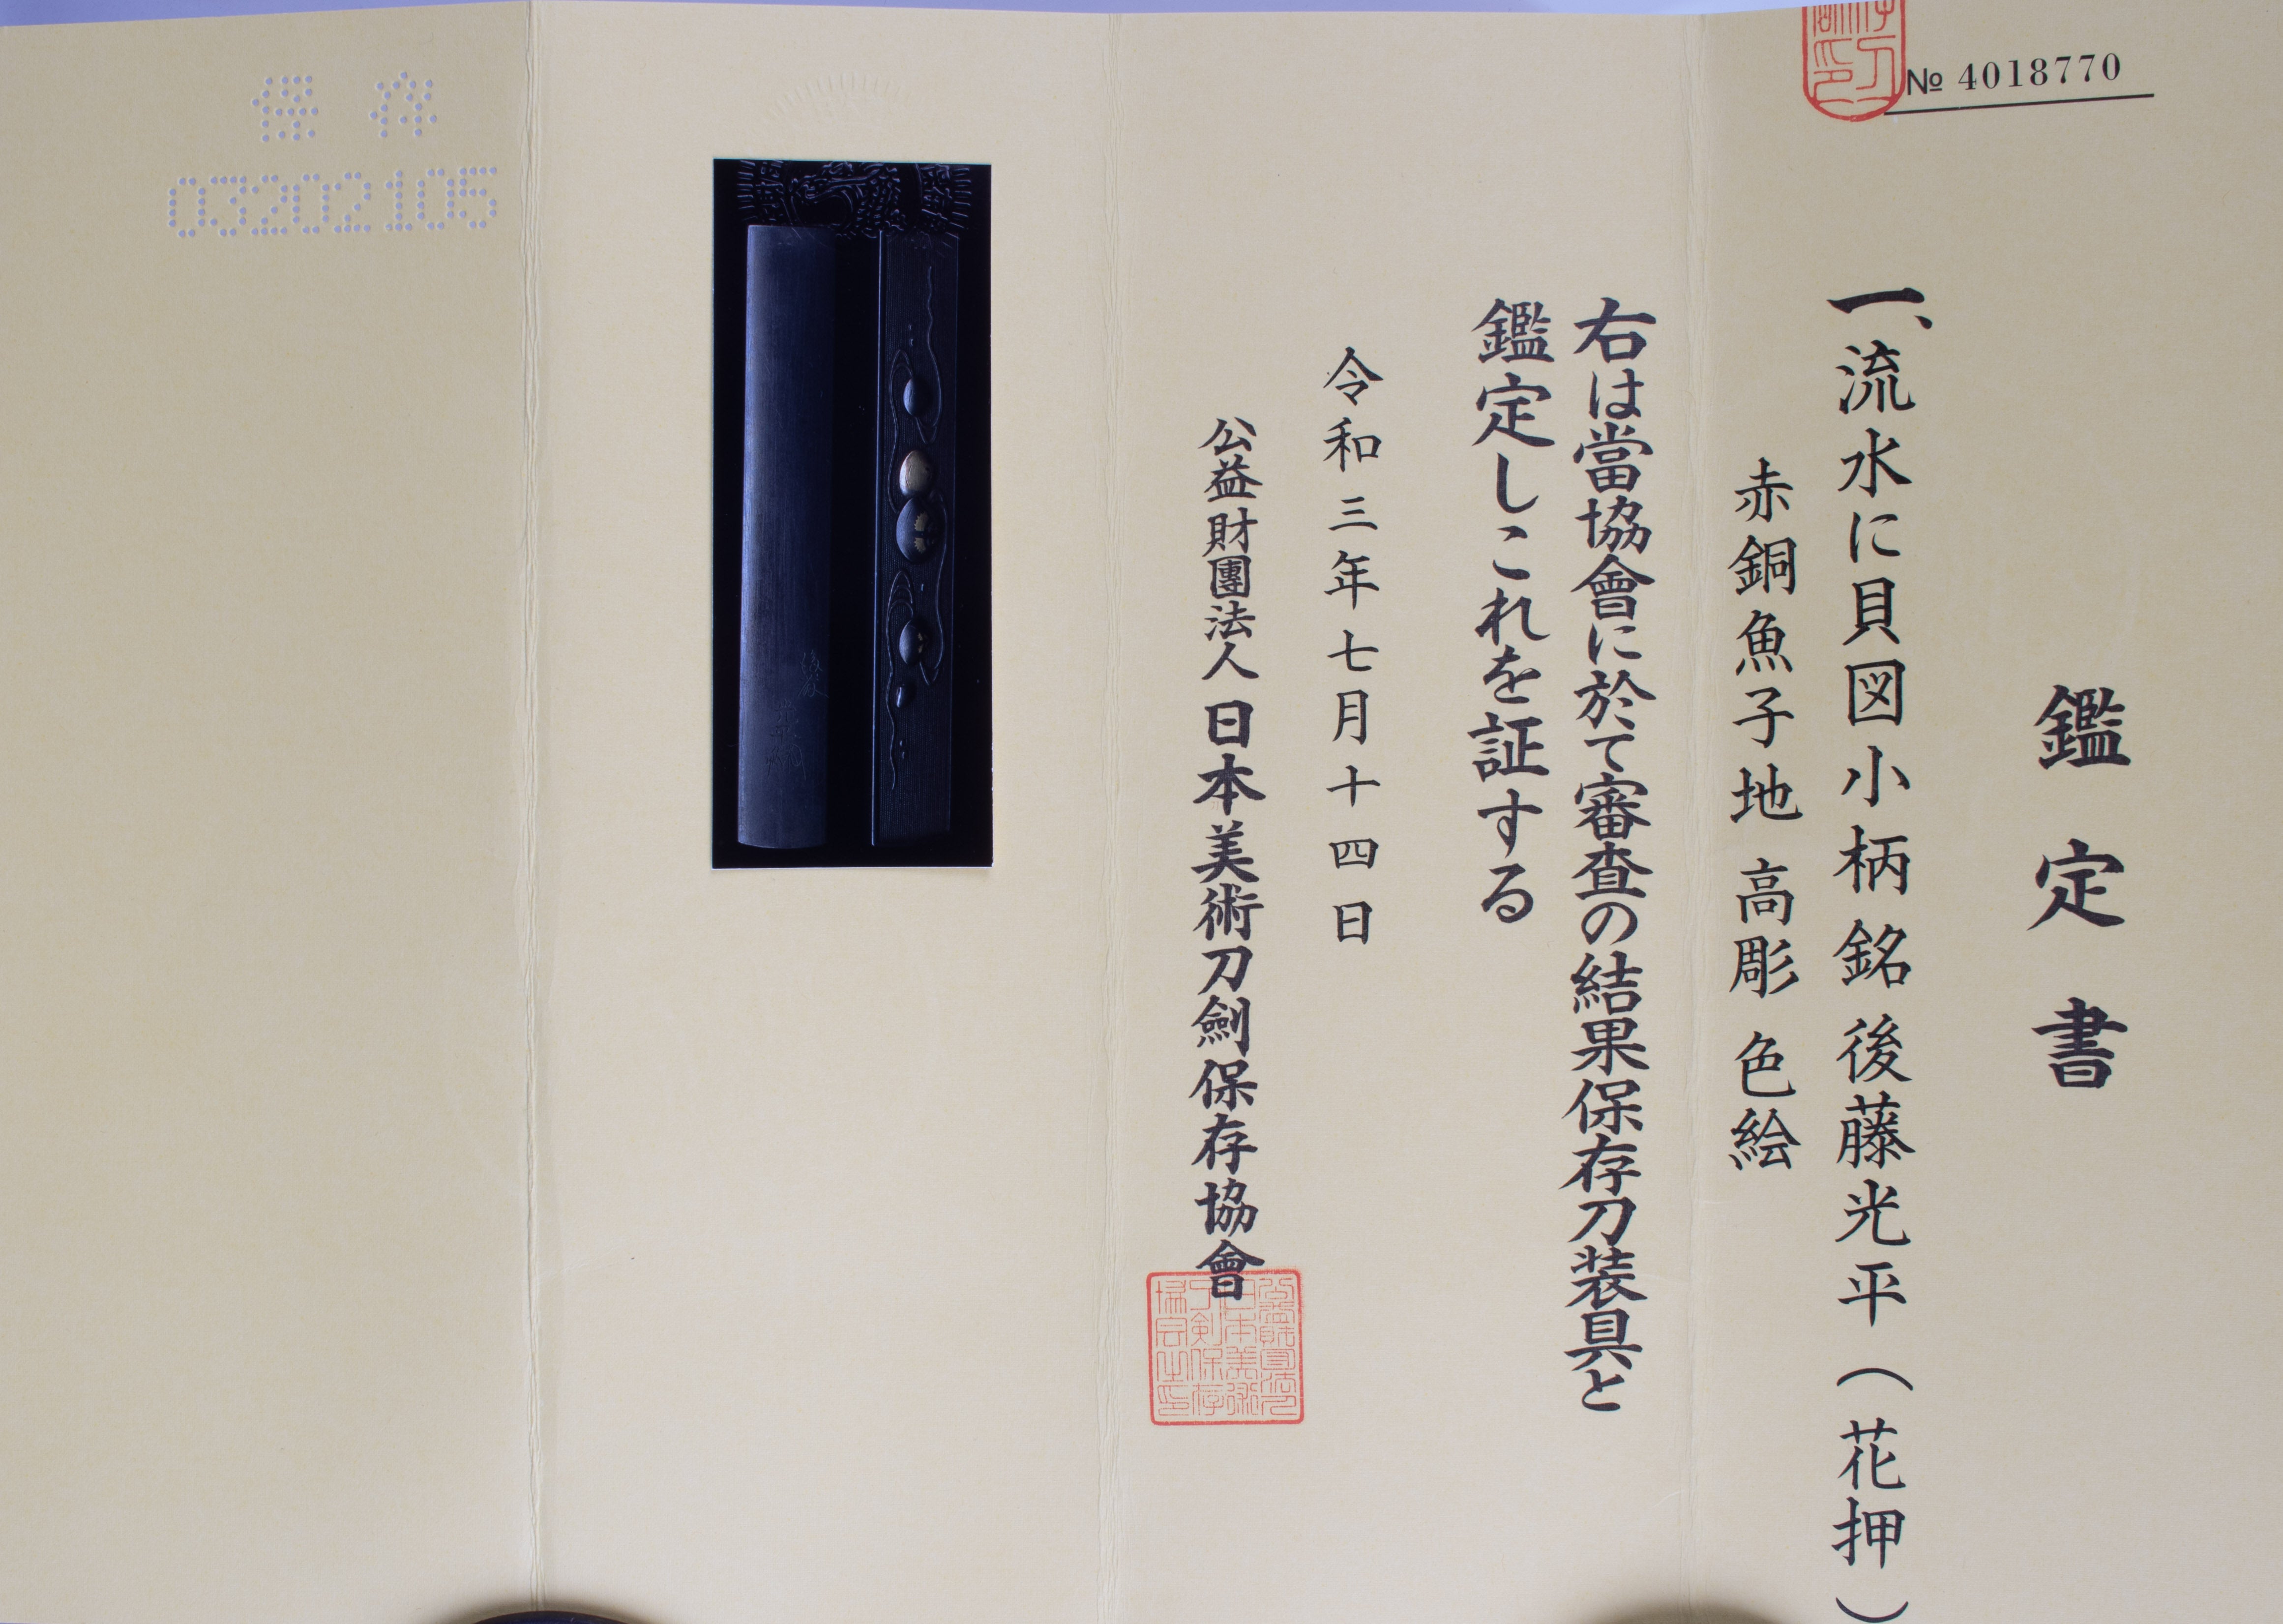 № 4018770
鑑定書
一、流水に貝図小柄 銘 後藤光平（花押）
赤銅魚子地 高彫 色絵
右は當協會に於て審査の結果保存刀装具と
鑑定しこれを証する
令和三年七月十四日
公益財團法人 日本美術刀劍保存協會
保存
03202105